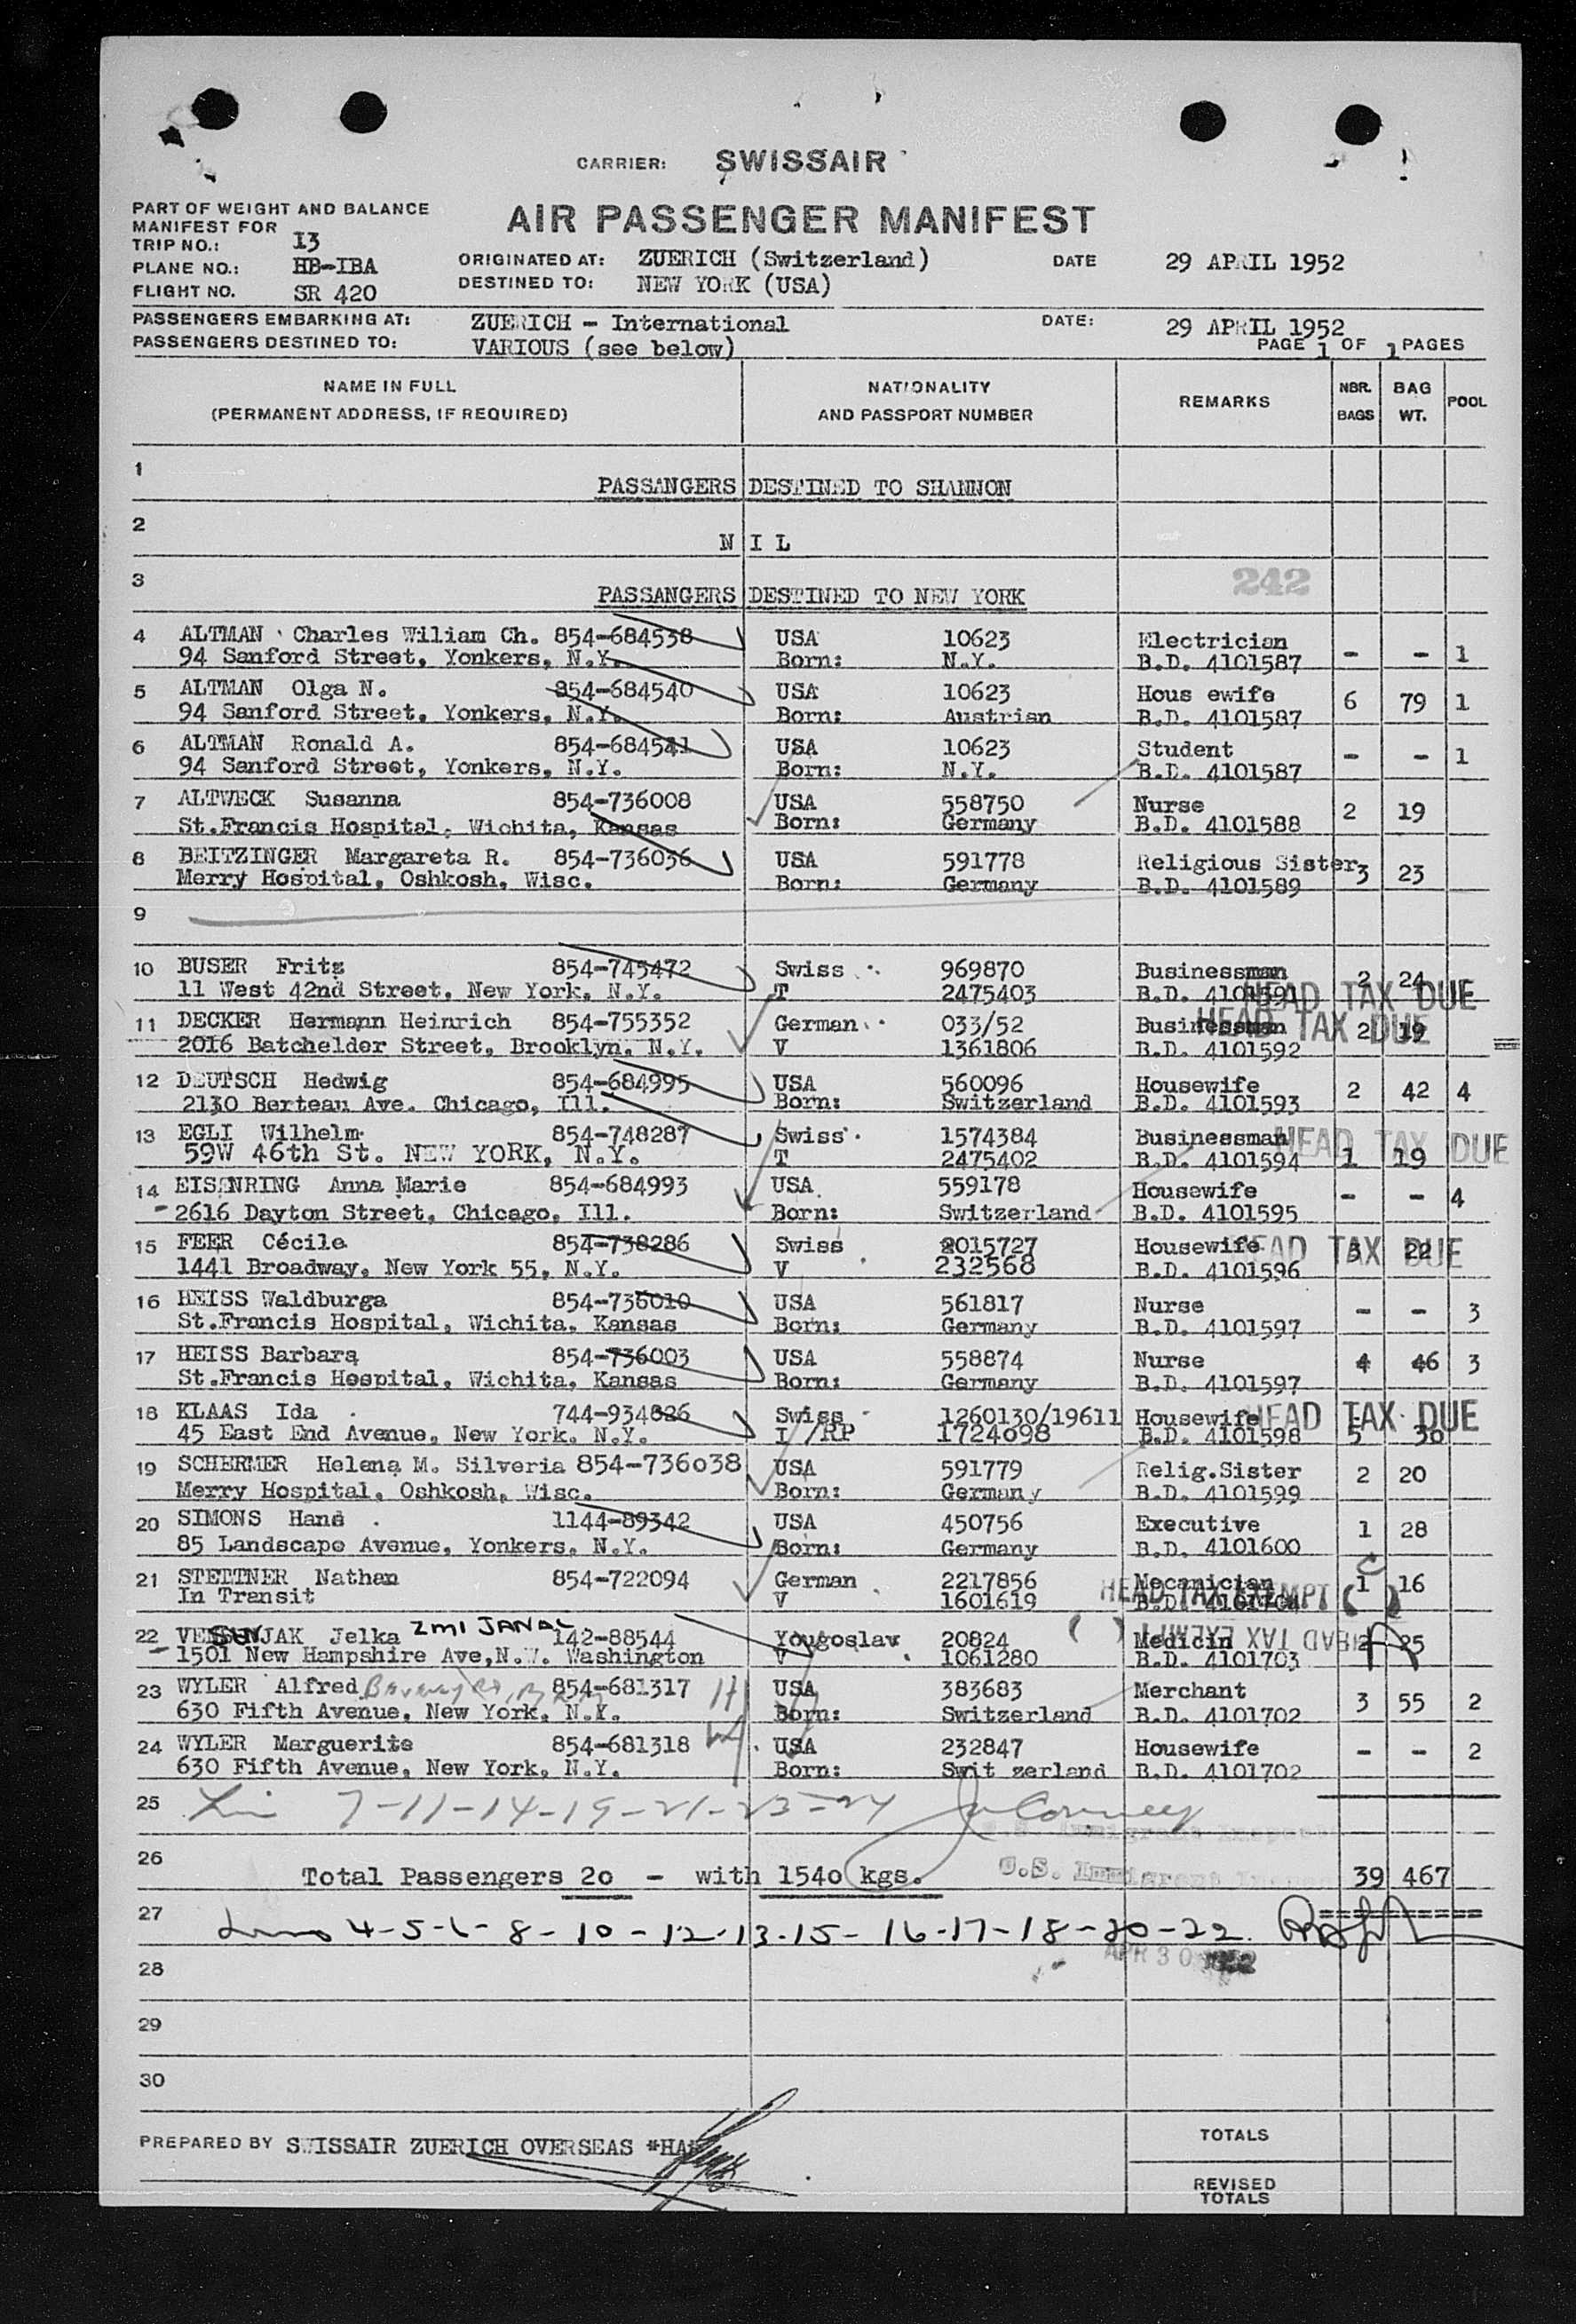 CARRIER: SWISSAIR
PART OF WEIGHT AND BALANCE
MANIFEST FOR
TRIP NO.: I3
PLANE NO.: HB-IBA
FLIGHT NO. SR 420
AIR PASSENGER MANIFEST
ORIGINATED AT: ZUERICH (Switzerland) DATE 29 APRIL 1952
DESTINED TO: NEW YORK (USA)
PASSENGERS EMBARKING AT: ZUERICH - International DATE: 29 APRIL 1952
PASSENGERS DESTINED TO: VARIOUS (see below) PAGE 1 OF 1 PAGES
NAME IN FULL NATIONALITY REMARKS NBR. BAG POOL
(PERMANENT ADDRESS, IF REQUIRED) AND PASSPORT NUMBER BAGS WT.
1 PASSANGERS DESTINED TO SHANNON
2 N I L
3 PASSANGERS DESTINED TO NEW YORK 242
4 ALTMAN Charles Wiliam Ch. 854-684538 USA 10623 Electrician - - 1
94 Sanford Street, Yonkers, N.Y. Born: N.Y. B.D. 4101587
5 ALTMAN Olga N. 854-684540 USA 10623 Hous ewife 6 79 1
94 Sanford Street, Yonkers, N.Y. Born: Austrian B.D. 4101587
6 ALTMAN Ronald A. 854-684541 USA 10623 Student - - 1
94 Sanford Street, Yonkers, N.Y. Born: N.Y. B.D. 4101587
7 ALTWECK Susanna 854-736008 USA 558750 Nurse 2 19
St.Francis Hospital, Wichita, Kansas Born: Germany B.D. 4101588
8 BEITZINGER Margareta R. 854-736036 USA 591778 Religious Sister 3 23
Merry Hospital, Oshkosh, Wisc. Born: Germany B.D. 4101589
9
10 BUSER Fritz 854-745472 Swiss 969870 Businessman 2 24
11 West 42nd Street, New York, N.Y. T 2475403 B.D. 4101591 HEAD TAX DUE
11 DECKER Hermann Heinrich 854-755352 German 033/52 Businessman 2 19 HEAD TAX DUE
2016 Batchelder Street, Brooklyn, N.Y. V 1361806 B.D. 4101592
12 DEUTSCH Hedwig 854-684995 USA 560096 Housewife 2 42 4
2130 Berteau Ave. Chicago, Ill. Born: Switzerland B.D. 4101593
13 EGLI Wilhelm 854-748287 Swiss 1574384 Businessman HEAD TAX DUE
59W 46th St. NEW YORK, N.Y. T 2475402 B.D. 4101594 1 19
14 EISENRING Anna Marie 854-684993 USA 559178 Housewife - - 4
2616 Dayton Street, Chicago, Ill. Born: Switzerland B.D. 4101595
15 FEER Cécile 854-738286 Swiss 2015727 Housewife 3 22 HEAD TAX DUE
1441 Broadway, New York 55, N.Y. V 232568 B.D. 4101596
16 HEISS Waldburga 854-736010 USA 561817 Nurse - - 3
St.Francis Hospital, Wichita, Kansas Born: Germany B.D. 4101597
17 HEISS Barbara 854-736003 USA 558874 Nurse 4 46 3
St.Francis Hospital, Wichita, Kansas Born: Germany B.D. 4101597
18 KLAAS Ida 744-934826 Swiss 1260130/19611 Housewife HEAD TAX DUE
45 East End Avenue, New York, N.Y. I /RP 1724098 B.D. 4101598 5 30
19 SCHERMER Helena M. Silveria 854-736038 USA 591779 Relig.Sister 2 20
Merry Hospital, Oshkosh, Wisc. Born: Germany B.D. 4101599
20 SIMONS Hans 1144-89342 USA 450756 Executive 1 28
85 Landscape Avenue, Yonkers, N.Y. Born: Germany B.D. 4101600
21 STETTNER Nathan 854-722094 German 2217856 Mecanician 1 16
In Transit V 1601619 B.D. HEAD TAX EXEMPT ( C )
22 JAK Jelka ZMIJANAC 142-88544 Yougoslav 20824 Medicin 2 25 HEAD TAX EXEMPT ( )
1501 New Hampshire Ave,N.W. Washington V 1061280 B.D. 4101703
23 WYLER Alfred 854-681317 USA 383683 Merchant 3 55 2
630 Fifth Avenue, New York, N.Y. Born: Switzerland B.D. 4101702
24 WYLER Marguerite 854-681318 USA 232847 Housewife - - 2
630 Fifth Avenue, New York, N.Y. Born: Swit zerland B.D. 4101702
25 7-11-14-19-21-23-24
U.S. Immigrant Inspector
26 Total Passengers 20 - with 1540 kgs. U.S. Immigrant Inspector 39 467
27 4-5-6-8-10-12-13-15-16-17-18-20-22
APR 30 1952
28
29
30
PREPARED BY SWISSAIR ZUERICH OVERSEAS TOTALS
REVISED
TOTALS